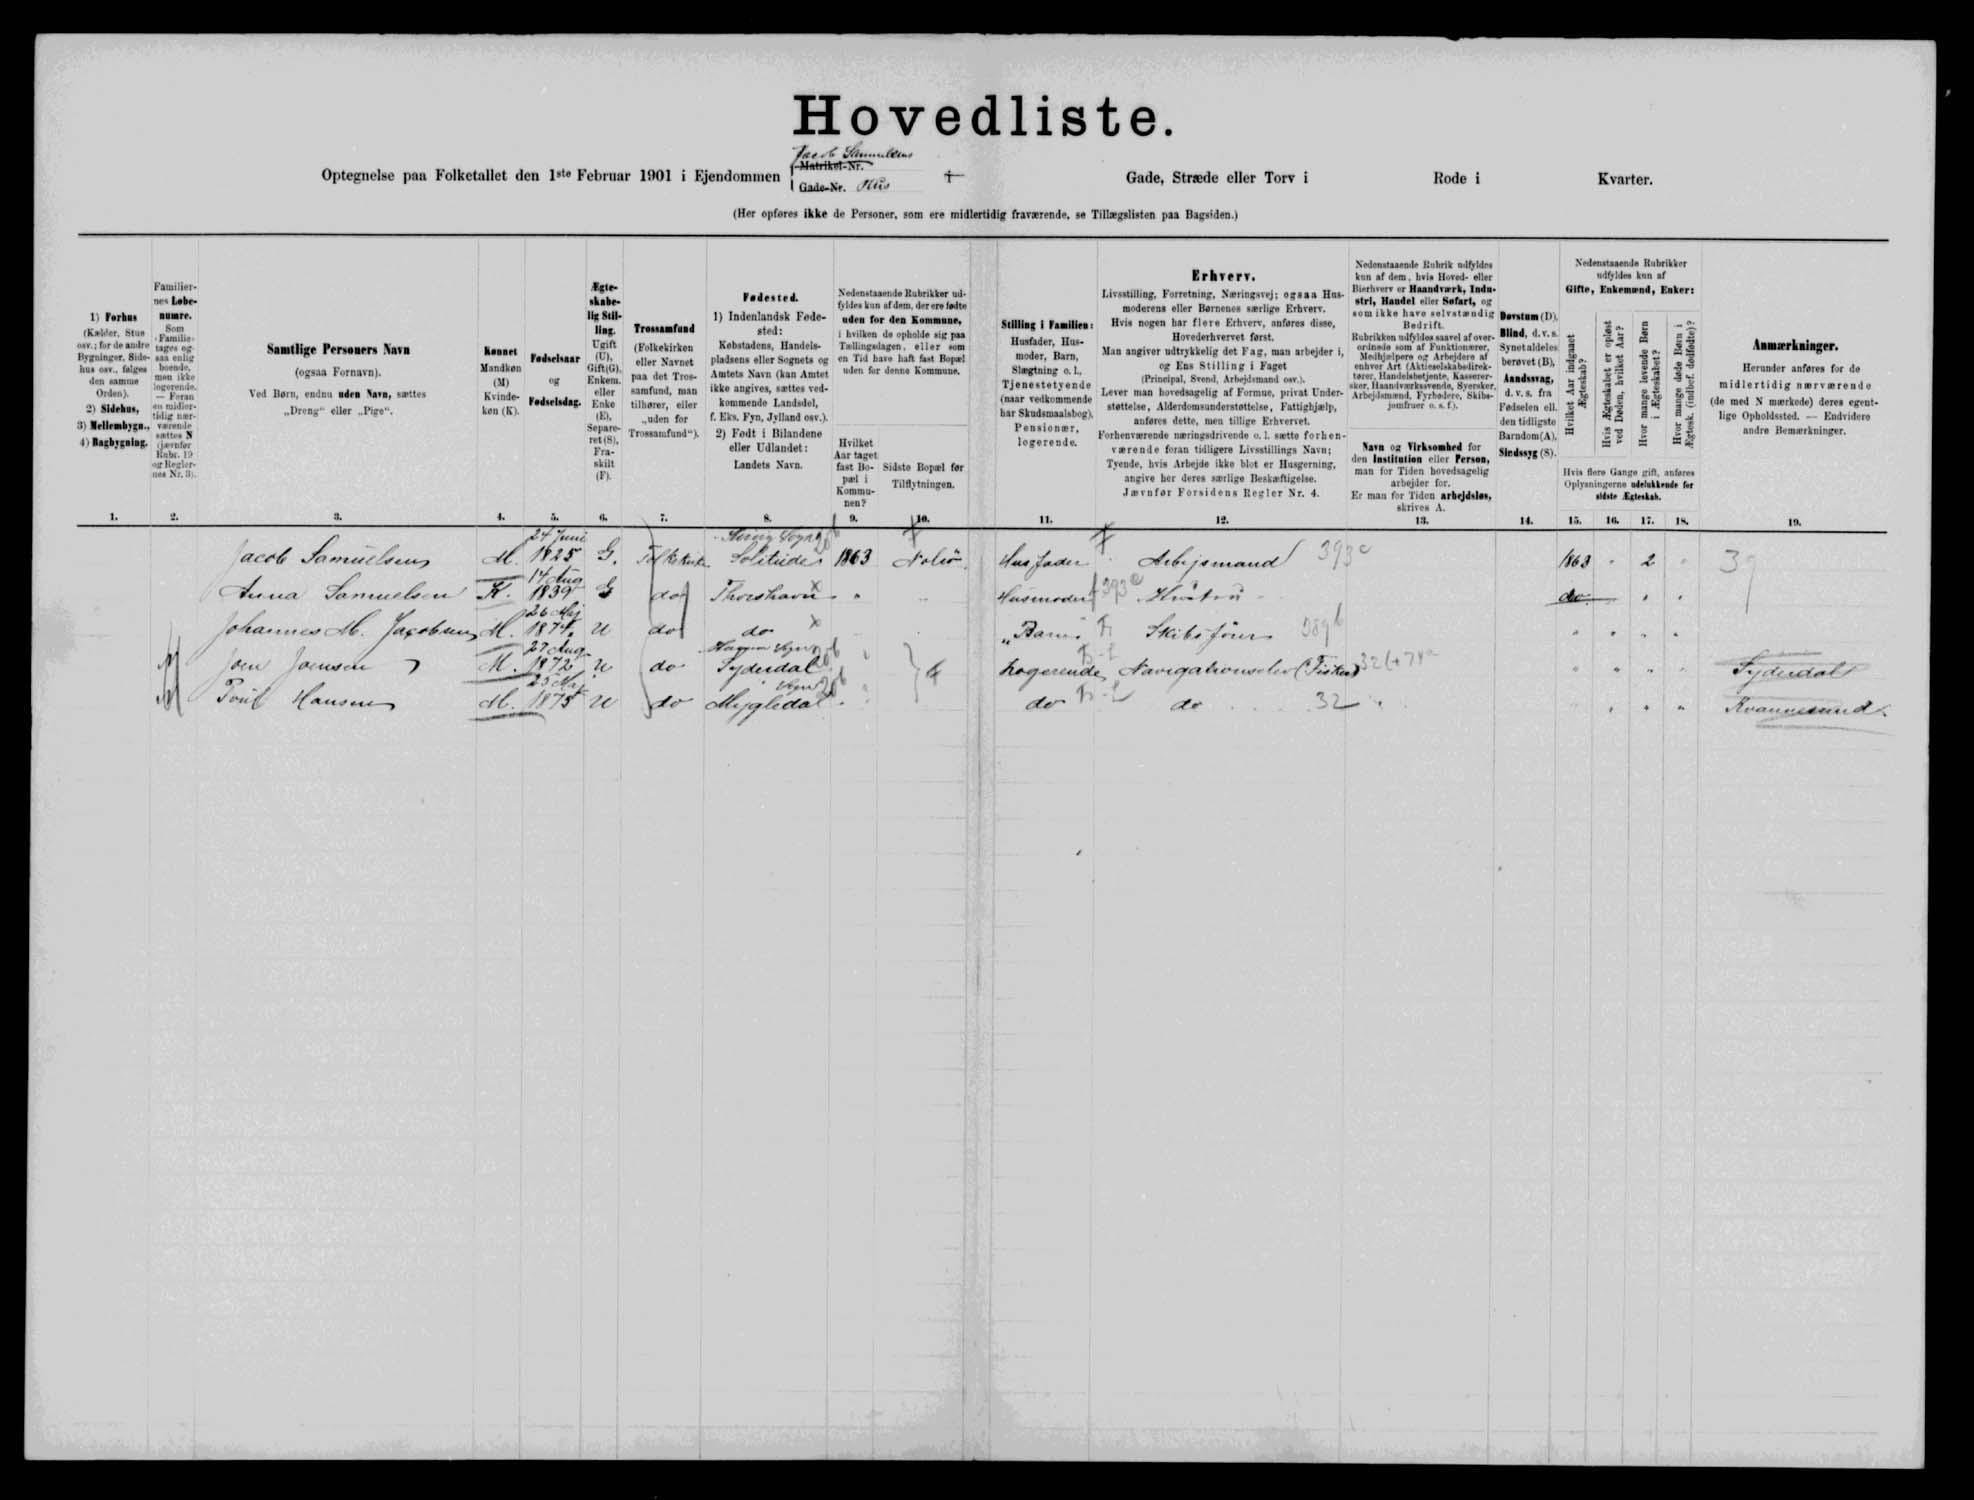 Hovedliste.
Jacob Samuelsens
Optegnelse paa Folketallet den 1ste Februar 1901 i Ejendommen Matrikel-Nr. Gade-Nr. Hus Gade, Stræde eller Torv i Rode i Kvarter.
(Her opføres ikke de Personer, som ere midlertidig fraværende, se Tillægslisten paa Bagsiden.)
1) Forhus (Kælder, Stue osv.; for de andre Bygninger, Sidehus osv., følges den samme Orden). 2) Sidehus, 3) Mellembygn., 4) Bagbygning.
Familiernes Løbenumre. Som Familie tages ogsaa enlig boende, men ikke logerende. — Foran en midlertidig nærværende sættes N (jævnfør Rubr. 19 og Reglernes Nr. 3).
Samtlige Personers Navn (ogsaa Fornavn). Ved Børn, endnu uden Navn, sættes „Dreng" eller „Pige".
Kønnet Mandkøn (M) Kvindekøn (K).
Fødselsaar og Fødselsdag.
Ægteskabelig Stilling. Ugift (U), Gift (G), Enkem. eller Enke (E), Separeret (S), Fraskilt (F).
Trossamfund (Folkekirken eller Navnet paa det Trossamfund, man tilhører, eller „uden for Trossamfund").
Fødested. 1) Indenlandsk Fødested: Købstadens, Handelspladsens eller Sognets og Amtets Navn (kan Amtet ikke angives, sættes vedkommende Landsdel, f. Eks. Fyn, Jylland osv.). 2) Født i Bilandene eller Udlandet: Landets Navn.
Nedenstaaende Rubrikker udfyldes kun af dem, der ere fødte uden for den Kommune, i hvilken de opholde sig paa Tællingsdagen, eller som en Tid have haft fast Bopæl uden for denne Kommune.
Hvilket Aar taget fast Bopæl i Kommunen?
Sidste Bopæl før Tilflytningen.
Stilling i Familien: Husfader, Husmoder, Barn, Slægtning o. l., Tjenestetyende (naar vedkommende har Skudsmaalsbog), Pensionær, logerende.
Erhverv.
Livsstilling, Forretning, Næringsvej; ogsaa Husmoderens eller Børnenes særlige Erhverv.
Hvis nogen har flere Erhverv, anføres disse, Hovederhvervet først.
Man angiver udtrykkelig det Fag, man arbejder i, og Ens Stilling i Faget (Principal, Svend, Arbejdsmand osv.).
Lever man hovedsagelig af Formue, privat Understøttelse, Alderdomsunderstøttelse, Fattighjælp, anføres dette, men tillige Erhvervet.
Forhenværende næringsdrivende o. l. sætte forhenværende foran tidligere Livsstillings Navn;
Tyende, hvis Arbejde ikke blot er Husgerning, angive her deres særlige Beskæftigelse.
Jævnfør Forsidens Regler Nr. 4.
Nedenstaaende Rubrik udfyldes kun af dem, hvis Hoved- eller Bierhverv er Haandværk, Industri, Handel eller Søfart, og som ikke have selvstændig Bedrift.
Rubrikken udfyldes saavel af overordnede som af Funktionærer, Medhjælpere og Arbejdere af enhver Art (Aktieselskabsdirektører, Handelsbetjente, Kasserersker, Haandværkssvende, Syersker, Arbejdsmænd, Fyrbødere, Skibsjomfruer o. s. f.).
Navn og Virksomhed for den Institution eller Person, man for Tiden hovedsagelig arbejder for.
Er man for Tiden arbejdsløs, skrives A.
Døvstum (D), Blind, d. v. s. Synet aldeles berøvet (B), Aandssvag, d. v. s. fra Fødselen ell. den tidligste Barndom (A), Sindssyg (S).
Nedenstaaende Rubrikker udfyldes kun af Gifte, Enkemænd, Enker:
Hvilket Aar indgaaet Ægteskab?
Hvis Ægteskabet er opløst ved Døden, hvilket Aar?
Hvor mange levende Børn i Ægteskabet?
Hvor mange døde Børn i Ægtesk. (indbef. dødfødte)?
Hvis flere Gange gift, anføres Oplysningerne udelukkende for sidste Ægteskab.
Anmærkninger.
Herunder anføres for de midlertidig nærværende (de med N mærkede) deres egentlige Opholdssted. — Endvidere andre Bemærkninger.
1. 2. 3. 4. 5. 6. 7. 8. 9. 10. 11. 12. 13. 14. 15. 16. 17. 18. 19.
24 Juni Sogn
Jacob Samuelsen M. 1825 G. Folkekirken Solitude 1863 Nolsö Husfader Arbejsmand 393c 1863 " 2 " 39
14 Aug
Anna Samuelsen K. 1839 G do Thorshavn " Husmoder 393e do " "
26 Maj
Johannes M. Jacobsen M. 1874 U do do „Barn" Skibsfører 389b
27 Aug. Sogn
Joen Joensen M. 1872 U do Syderdal logerende Navigationselev (Fisker) Syderdal
25 Maj Sogn
Poul Hansen M. 1875 U do Mygledal do do 32 Kvannesund